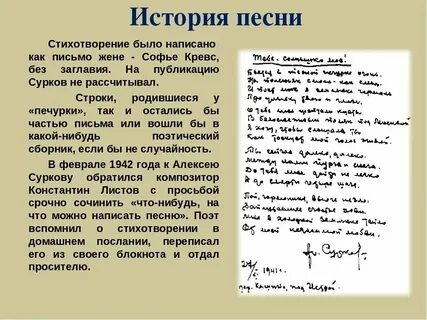 История песни
Стихотворение было написано
как письмо жене - Софье Кревс,
без заглавия. На публикацию
Сурков не рассчитывал.
Строки, родившиеся у
«печурки», так и остались бы
частью письма или вошли бы в
какой-нибудь поэтический
сборник, если бы не случайность.
В феврале 1942 года к Алексею
Суркову обратился композитор
Константин Листов с просьбой
срочно сочинить «что-нибудь, на
что можно написать песню». Поэт
вспомнил о стихотворении в
домашнем послании, переписал
его из своего блокнота и отдал
просителю.
Тебе - солнышко мое!
Бьется в тесной печурке огонь.
На поленьях смола - как слеза.
И поет мне в землянке гармонь
Про улыбку твою и глаза.
В белоснежных полях под Москвой
Я хочу, чтобы слышала ты
Как тоскует мой голос живой.
Ты сейчас далеко, далеко.
Между нами снега и снега.
До тебя мне дойти не легко
А до смерти четыре шага.
Пой, гармоника, вьюге назло.
Заплутавшее счастье зови.
Мне в холодной землянке тепло
От моей негасимой любви.
Ал. Сурков
1941 г.